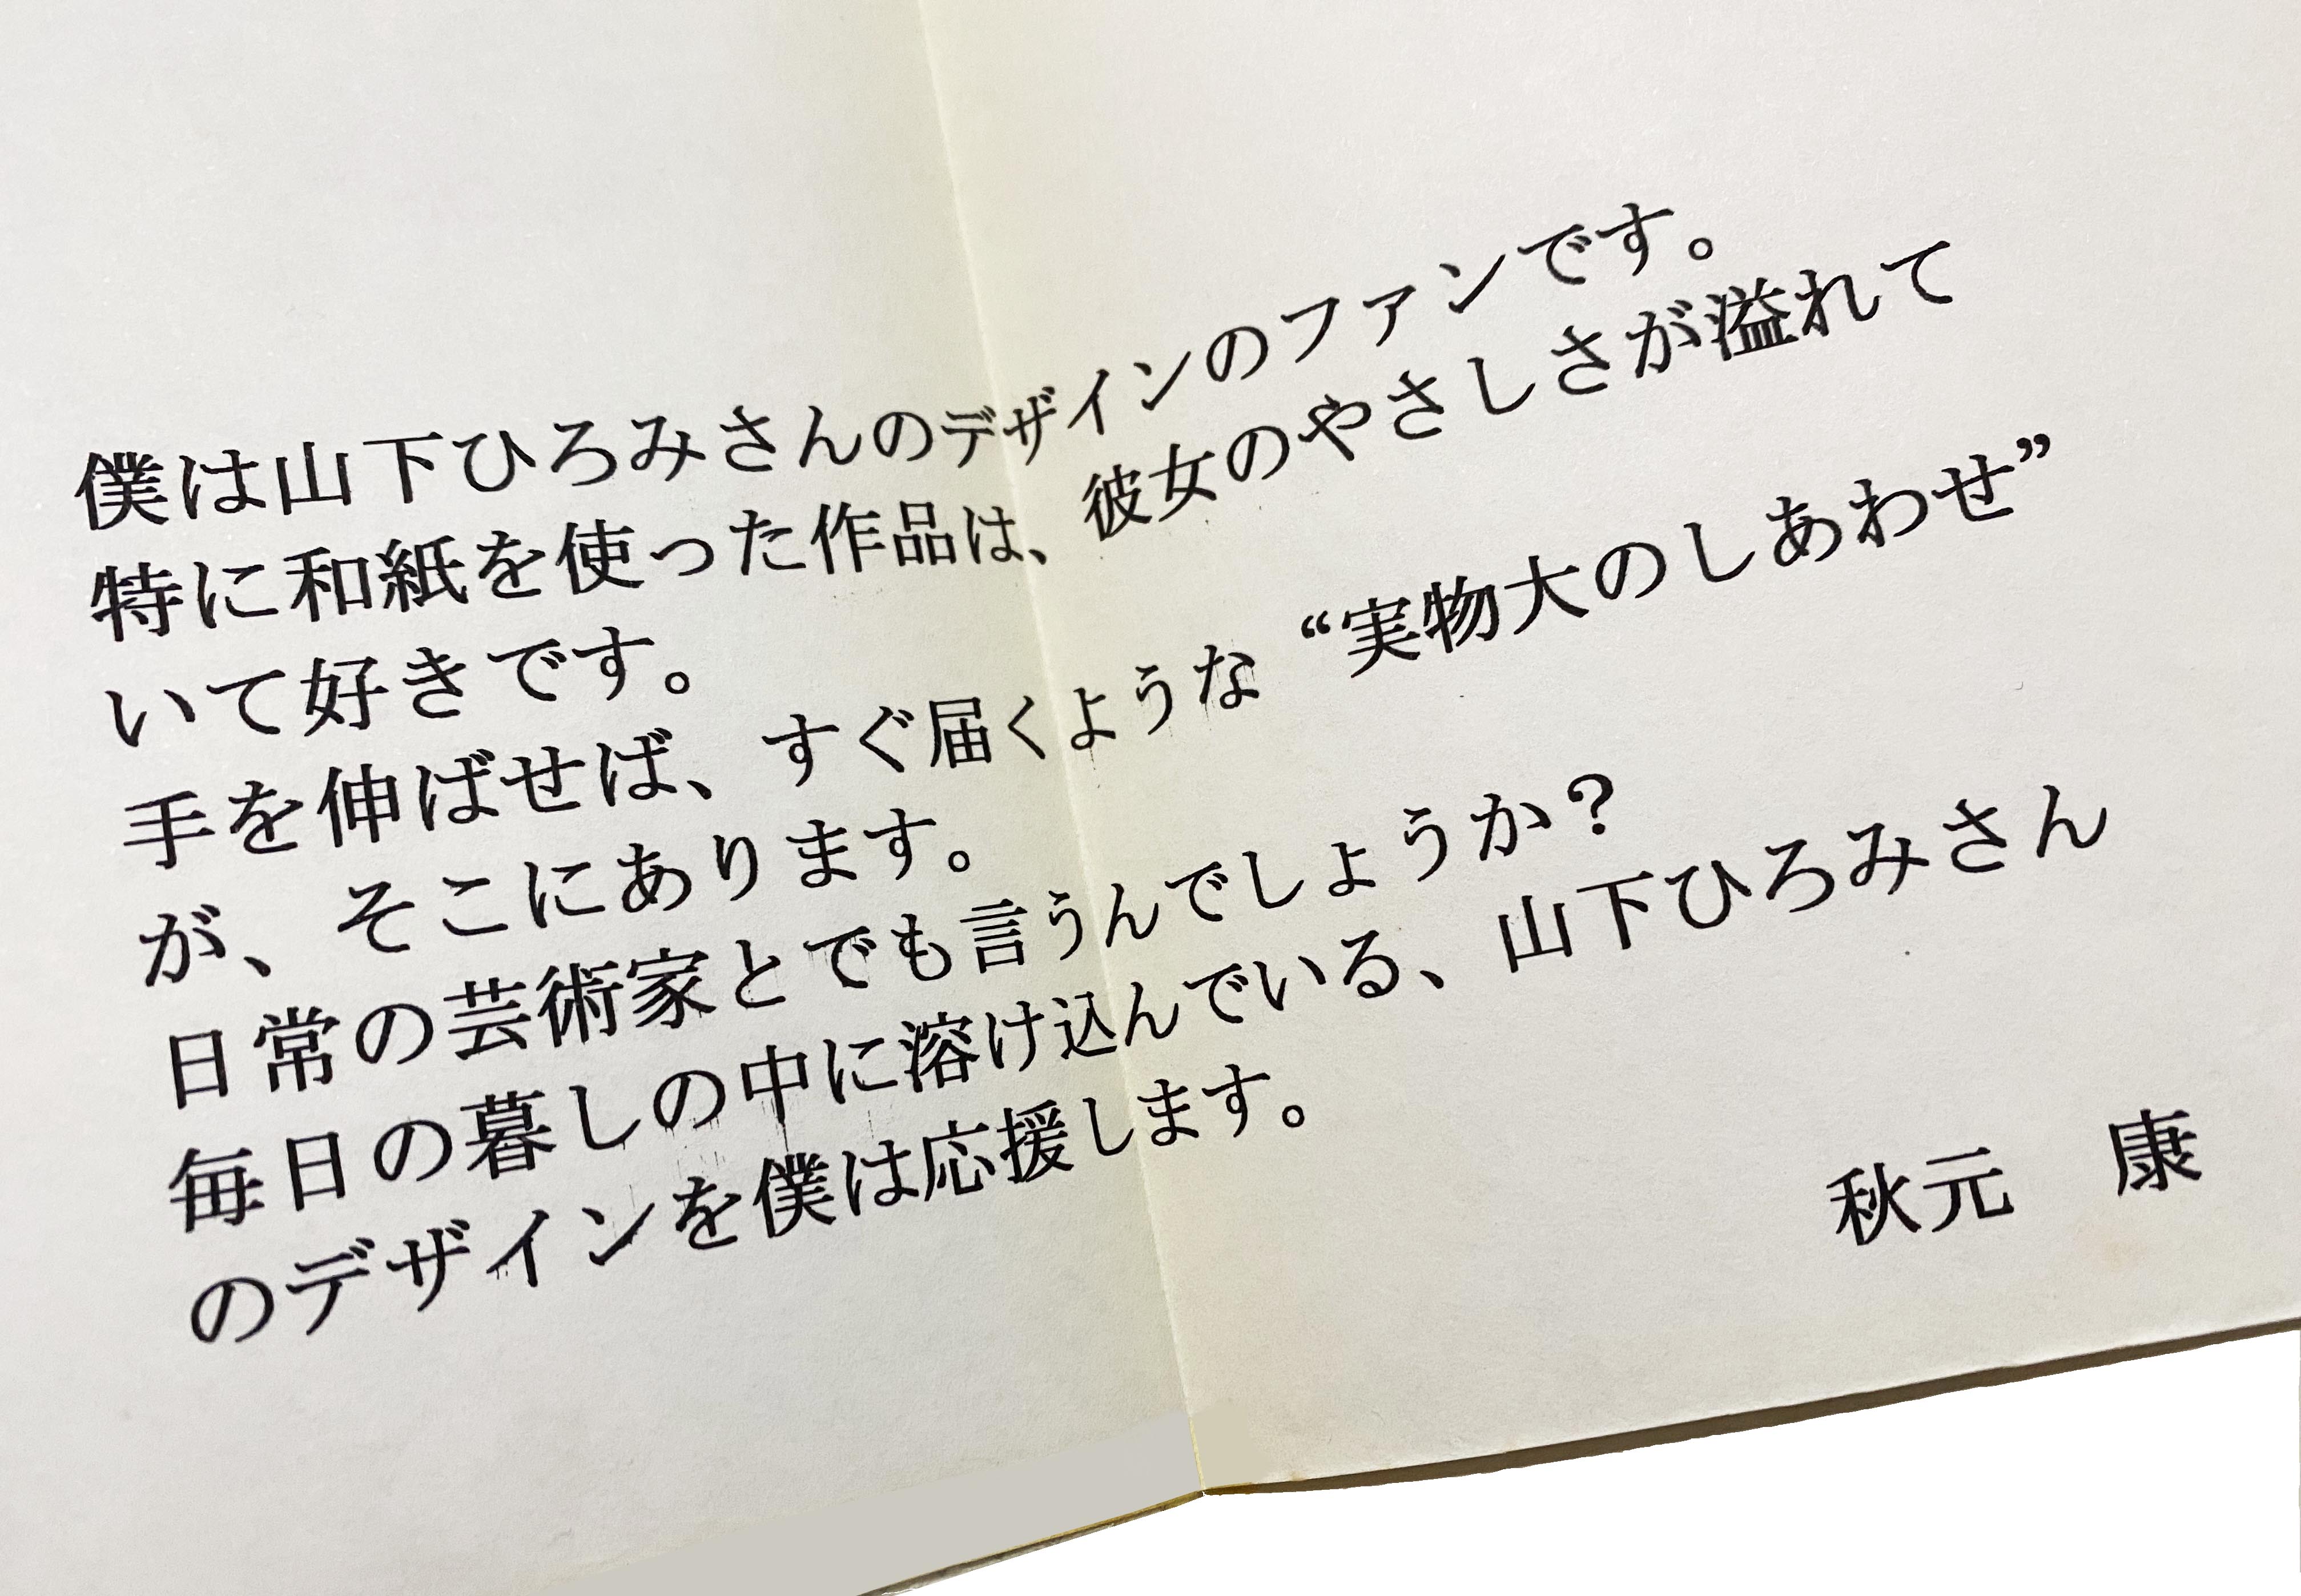 僕は山下ひろみさんのデザインのファンです。
特に和紙を使った作品は、彼女のやさしさが溢れて
いて好きです。
手を伸ばせば、すぐ届くような“実物大のしあわせ”
が、そこにあります。
日常の芸術家とでも言うんでしょうか？
毎日の暮しの中に溶け込んでいる、山下ひろみさん
のデザインを僕は応援します。
秋元　康